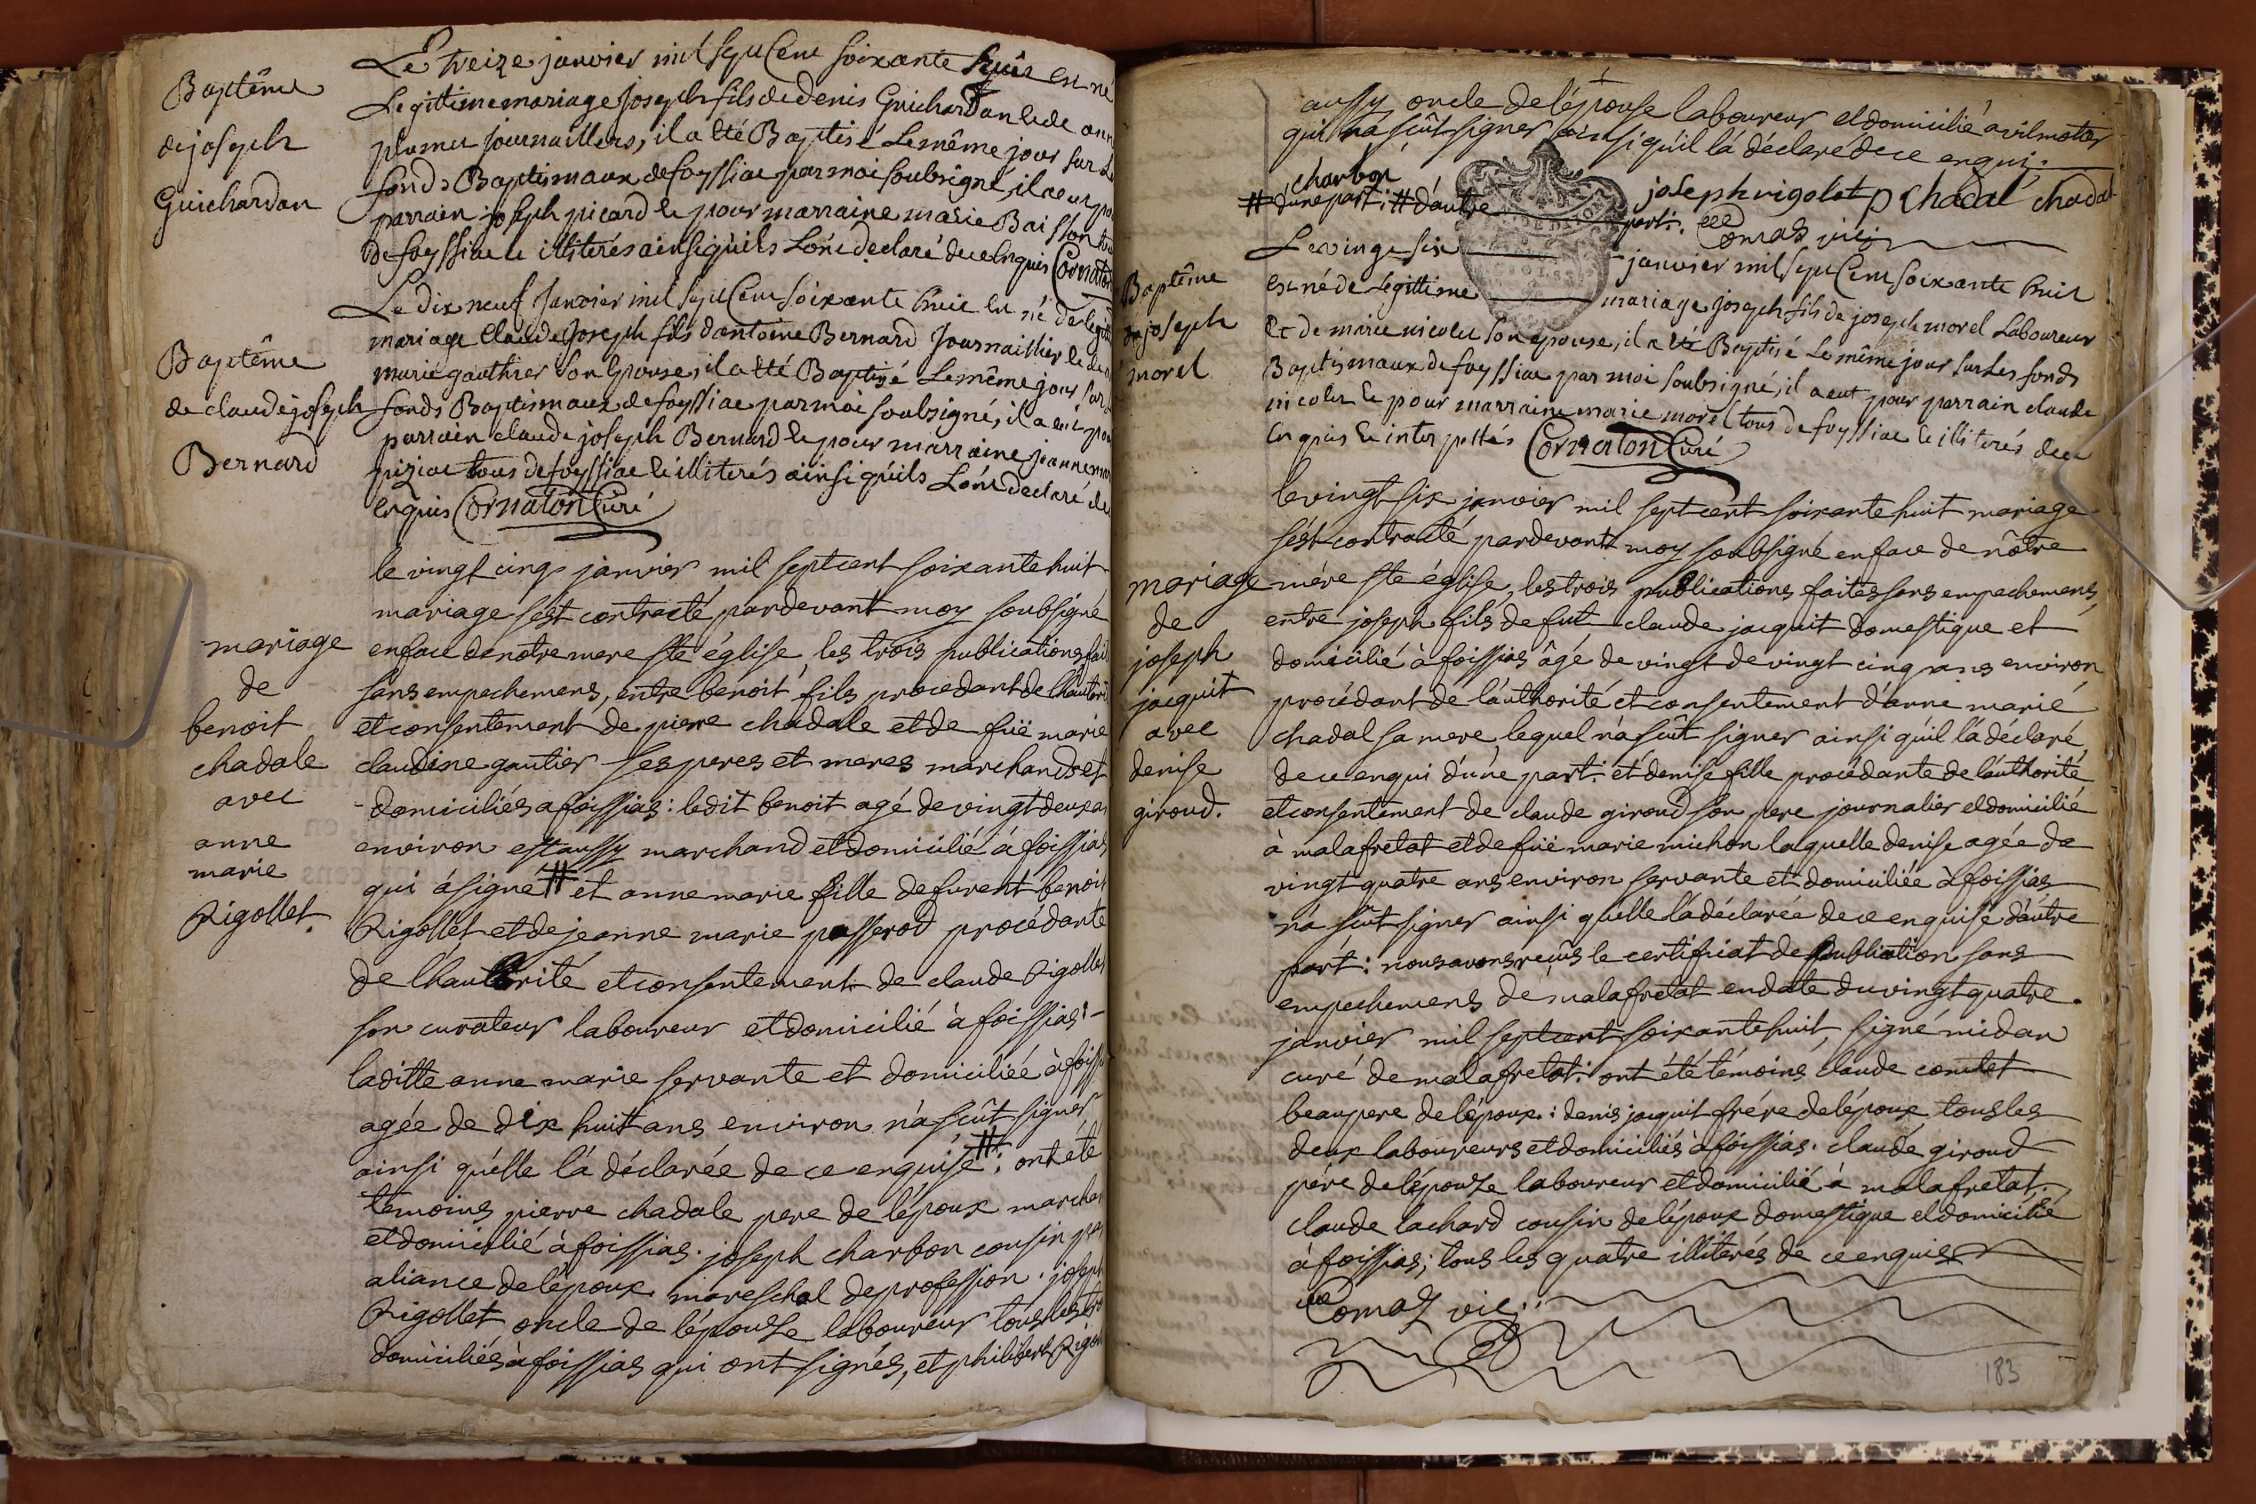 Baptême
de joseph
Guichardan
Le treize janvier mil sept Cent soixante huit est né
Legittime mariage Joseph fils de denis Guichardan et de ann
plumet journailliers, il a été Baptisé Le même jour sur Le
fonds Baptismaux de foyssiac par moi soubsigné, il a eut po
parrain joseph picard et pour marraine marie Baisson tou
de foyssiac et illiterés ainsi quils L'ont declaré de ce Enquis Cornaton
Baptême
de claude joseph
Bernard
Le dix neuf Janvier mil sept Cent soixante huit est né de legit
mariage Claude Joseph fils dantoine Bernard Journaillier et de
marie gauthier son Epouse, il a été Baptizé Le même jour sur
fonds Baptismaux de foyssiac par moi soubsigné, il a eut pou
parrain claude joseph Bernard et pour marraine jeanne mar
piziac tous de foyssiac et illiterés ainsi quils L'ont declaré de
Enquis Cornaton Curé
mariage
de
benoit
chadale
avec
anne
marie
Rigollet.
le vingt cinq janvier mil sept cent soixante huit
mariage s'est contracté pardevant moy soubsigné
en face de notre mere ste église, les trois publications fait
sans empechemens, entre benoit fils procedant de lhautori
et consentement de pierre chadale et de füe marie
claudine gautier ses peres et meres marchands et
domiciliés a foissias: ledit benoit agé de vingt deux a
environ est aussy marchand et domicilié à foissias
qui à signé # et anne marie fille de furent benoit
Rigollet et de jeanne marie passerod procédante
de lhauthorité et consentement de claude Rigollet
son curateur laboureur et domicilié à foissias
laditte anne marie servante et domiciliée à foiss
agée de dix huit ans environ n'a scût signer
ainsi qu'elle l'a déclarée de ce enquise #: ont été
témoins pierre chadale pere de l'époux marchan
et domicilié à foissias. joseph charbon cousin par
aliance de l'époux mareschal de profession. joseph
Rigollet oncle de l'épouse laboureur tous les tro
domiciliés à foissias qui ont signés, et philibert Rigol
aussy oncle de l'épouse laboureur et domicilié a vilmotie
qui n'a scût signer ainsi qu'il l'a déclaré de ce enqui.
charbon
# d'une part: # d'autre part:
joseph rigolat p chadal chadal
Comaz vic:
Baptême
de joseph
morel
Le vingt six janvier mil sept Cent soixante huit
est né de Legittime mariage joseph fils de joseph morel Laboureur
Et de marie nicolet son epouse, il a été Baptisé Le même jour sur Les fonds
Baptismaux de foyssiac par moi soubsigné, il a eut pour parrain claude
nicolet et pour marraine marie morel tous de foyssiac et illiterés de ce
Enquis et interpellés Cornaton Curé
mariage
de
joseph
jacquit
avec
denise
giroud.
le vingt six janvier mil sept cent soixante huit mariage
s'est contracté pardevant moy soubsigné en face de nôtre
mére ste église, les trois publications faites sans empechemens,
entre joseph fils de fut claude jacquit domestique et
domicilié à foissias âgé de vingt de vingt cinq ans environ
procédant de l'authorité et consentement d'anne marie
chadal sa mere lequel n'a scût signer ainsi qu'il l'a déclaré
de ce enqui d'une part: et denise fille procédante de l'authorité
et consentement de claude giroud son pere journalier et domicilié
à malafretat et de füe marie michon laquelle denise agée de
vingt quatre ans environ servante et domiciliée à foissias
n'a scût signer ainsi qu'elle l'a déclarée de ce enquise d'autre
part: nous avons reçûs le certificat de publication sans
empechemens de malafretat en date du vingt quatre
janvier mil sept cent soixante huit, signé midan
curé de malafretat: ont été témoins claude comtet
beaupere de l'époux: denis jacquit frére de l'époux tous les
deux laboureurs et domiciliés à foissias. claude giroud
pére de l'épouse laboureur et domicilié à malafretat.
claude lachard cousin de l'époux domestique et domicilié
à foissias; tous les quatre illiterés de ce enquis
Comaz vic:
183